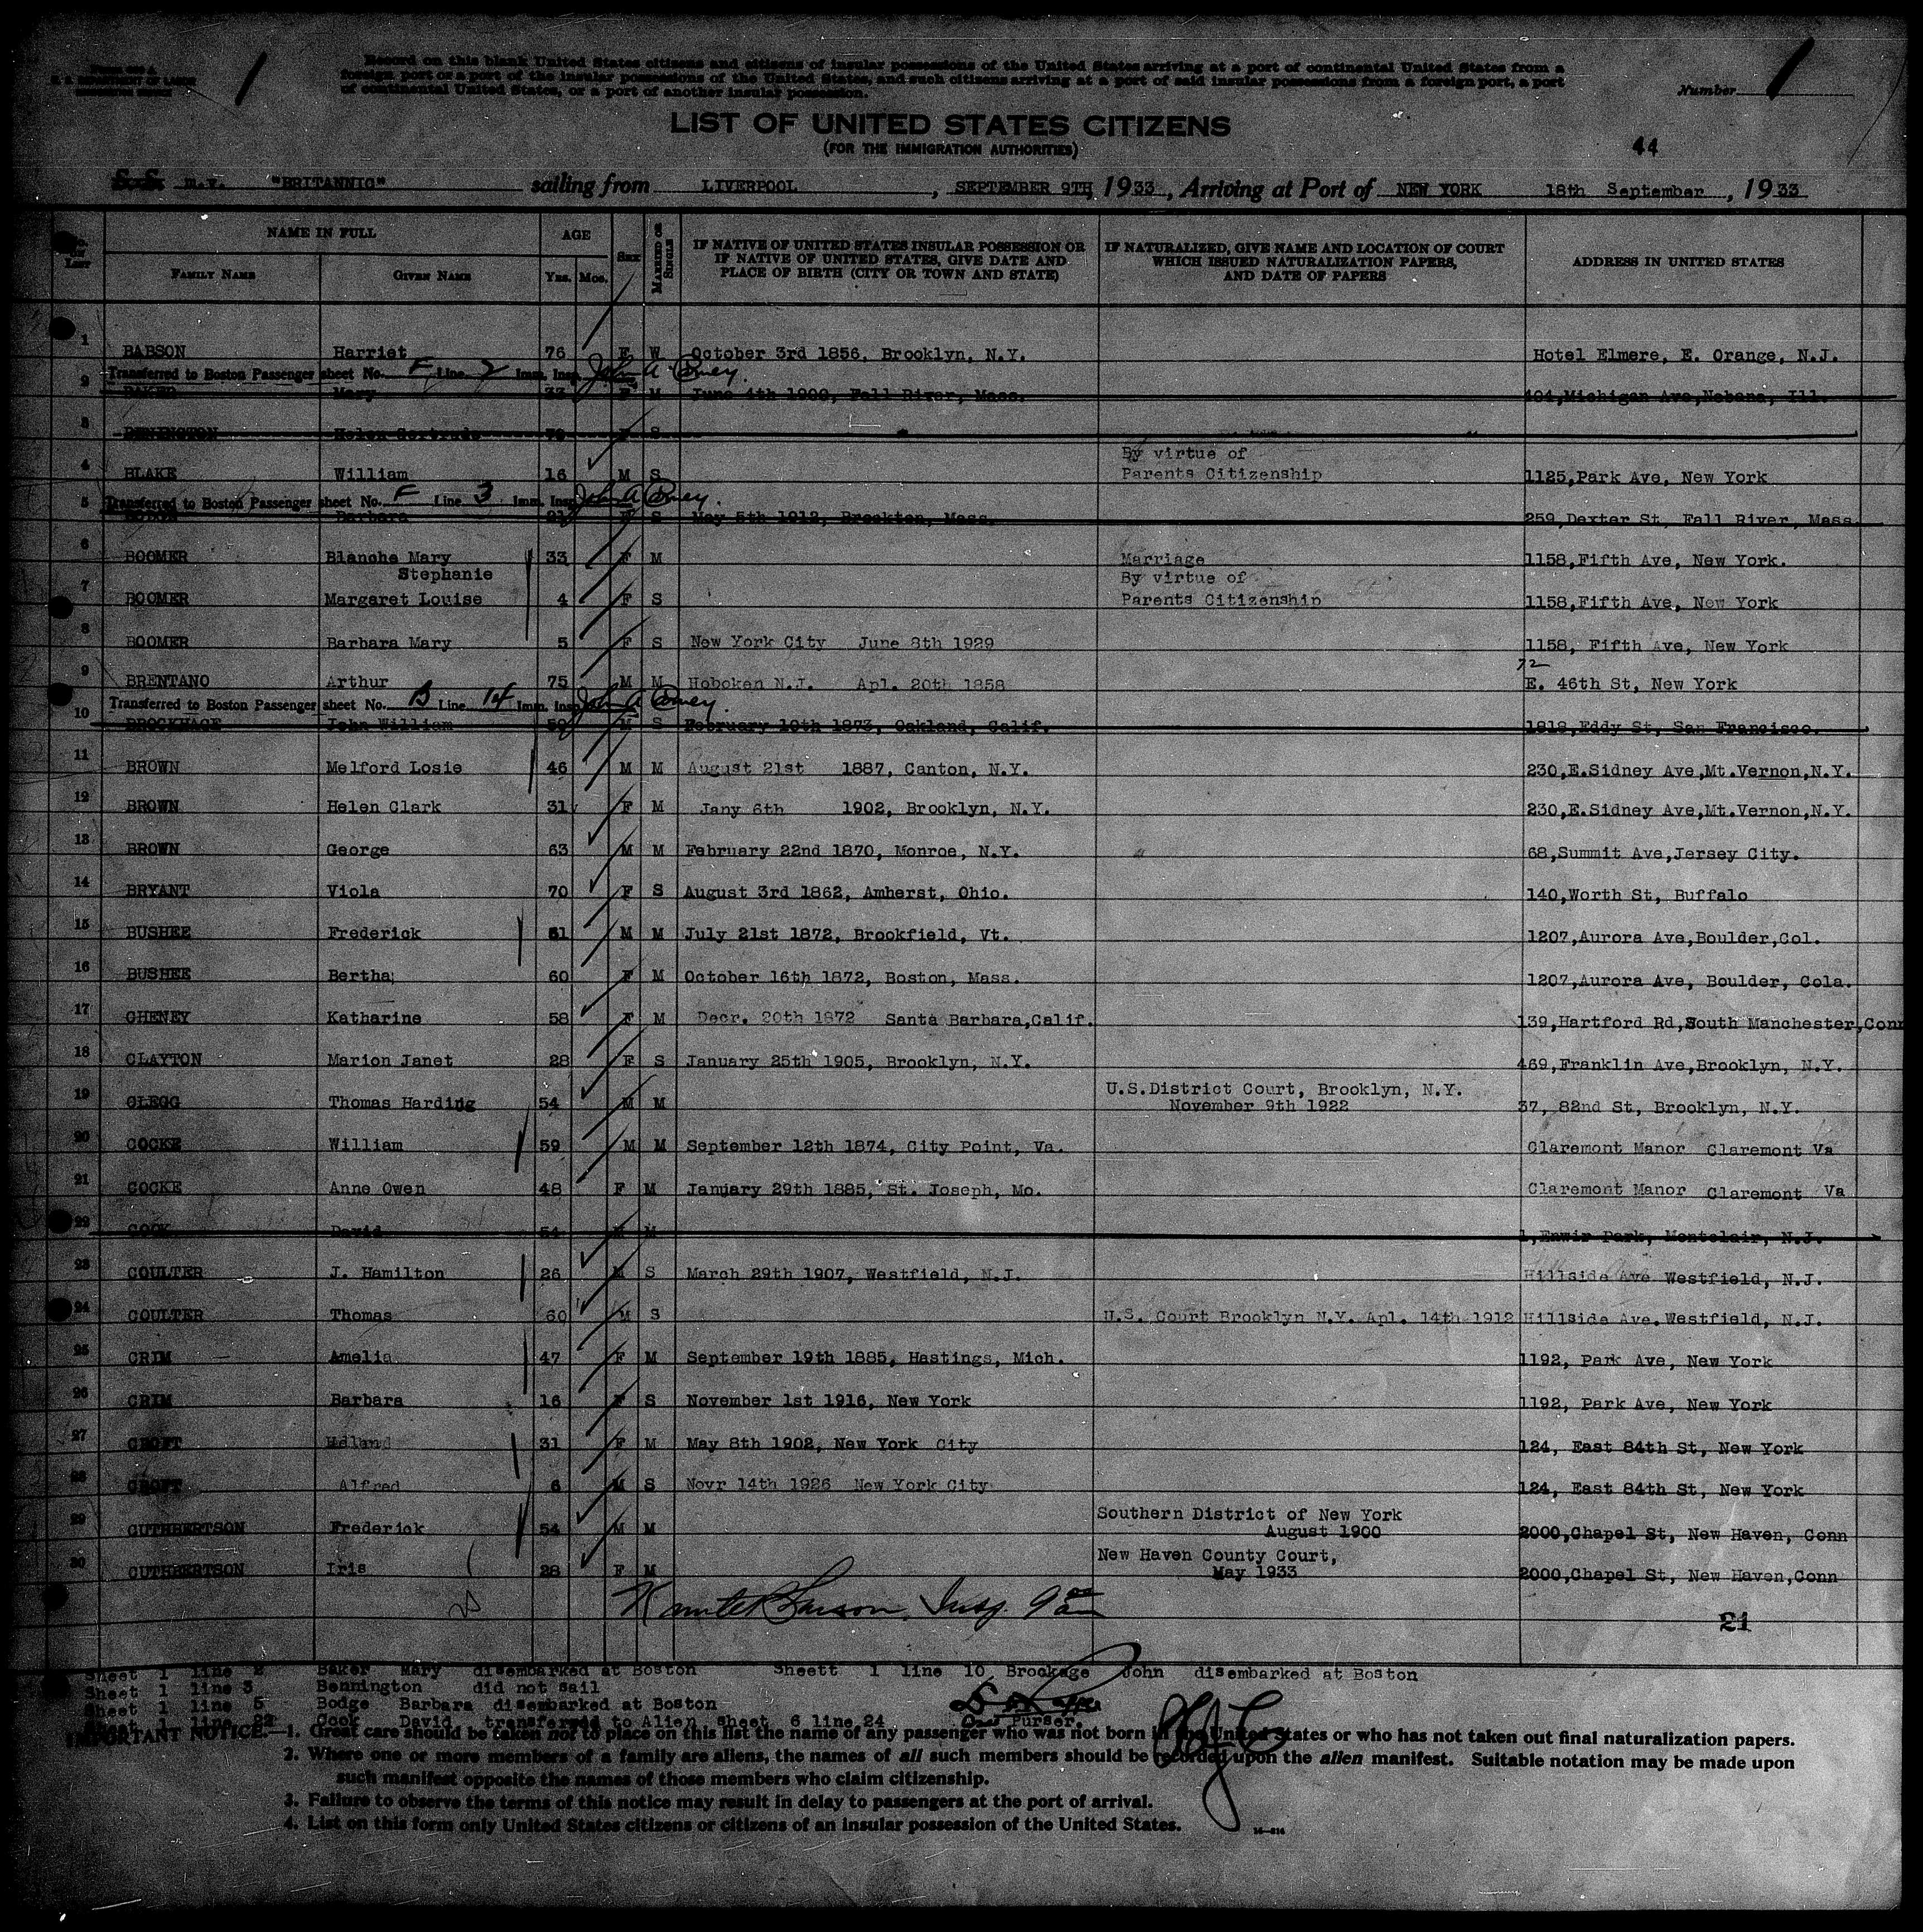 U. S. DEPARTMENT OF LABOR
IMMIGRATION SERVICE
1
Record on this blank United States citizens and citizens of insular possessions of the United States arriving at a port of continental United States from a
foreign port or a port of the insular possessions of the United States, and such citizens arriving at a port of said insular possessions from a foreign port, a port
of continental United States, or a port of another insular possession.
Number 1
LIST OF UNITED STATES CITIZENS
(FOR THE IMMIGRATION AUTHORITIES)
44
S.S. m.v. "BRITANNIC" sailing from LIVERPOOL, SEPTEMBER 9TH, 1933, Arriving at Port of NEW YORK 18th September, 1933
No. ON LIST
NAME IN FULL
FAMILY NAME
GIVEN NAME
AGE
YRS. MOS.
SEX
MARRIED OR SINGLE
IF NATIVE OF UNITED STATES INSULAR POSSESSION OR
IF NATIVE OF UNITED STATES, GIVE DATE AND
PLACE OF BIRTH (CITY OR TOWN AND STATE)
IF NATURALIZED, GIVE NAME AND LOCATION OF COURT
WHICH ISSUED NATURALIZATION PAPERS,
AND DATE OF PAPERS
ADDRESS IN UNITED STATES
1 BABSON Harriet 76 F W October 3rd 1856, Brooklyn, N.Y. Hotel Elmere, E. Orange, N.J.
Transferred to Boston Passenger sheet No. F Line 2 Imm. Insp. John A
2 BAKER Mary 33 F M June 4th 1900, Fall River, Mass. 404, Michigan Ave, Ill.
3 BENINGTON Helen Gertrude S
4 BLAKE William 16 M S By virtue of
Parents Citizenship 1125,Park Ave, New York
Transferred to Boston Passenger sheet No. F Line 3 Imm. Insp. John A
5 Barbara 21 F S May 5th 1912, Brockton, Mass. 259, Dexter St, Fall River, Mass
6 BOOMER Blanche Mary
Stephanie 33 F M Marriage 1158,Fifth Ave, New York.
7 BOOMER Margaret Louise 4 F S By virtue of
Parents Citizenship 1158,Fifth Ave, New York
8 BOOMER Barbara Mary 5 F S New York City June 8th 1929 1158, Fifth Ave, New York
9 BRENTANO Arthur 75 M M Hoboken N.J. Apl. 20th 1858 72
E. 46th St, New York
Transferred to Boston Passenger sheet No. B Line 14 Imm. Insp. John A
10 BROCKHAGE John William 59 M S February 10th 1873, Oakland, Calif. 1818,Eddy St, San Francisco.
11 BROWN Melford Losie 46 M M August 21st 1887, Canton, N.Y. 230,E.Sidney Ave,Mt.Vernon,N.Y.
12 BROWN Helen Clark 31 F M Jany 6th 1902, Brooklyn, N.Y. 230,E.Sidney Ave,Mt.Vernon,N.Y.
13 BROWN George 63 M M February 22nd 1870, Monroe, N.Y. 68,Summit Ave,Jersey City.
14 BRYANT Viola 70 F S August 3rd 1862, Amherst, Ohio. 140,Worth St, Buffalo
15 BUSHEE Frederick 61 M M July 21st 1872, Brookfield, Vt. 1207,Aurora Ave,Boulder,Col.
16 BUSHEE Bertha 60 F M October 16th 1872, Boston, Mass. 1207,Aurora Ave, Boulder, Cola.
17 CHENEY Katharine 58 F M Decr. 20th 1872 Santa Barbara,Calif. 139,Hartford Rd,South Manchester,Conn
18 CLAYTON Marion Janet 28 F S January 25th 1905, Brooklyn, N.Y. 469,Franklin Ave,Brooklyn, N.Y.
19 CLEGG Thomas Harding 54 M M U.S.District Court, Brooklyn, N.Y.
November 9th 1922 37, 82nd St, Brooklyn, N.Y.
20 COCKE William 59 M M September 12th 1874, City Point, Va. Claremont Manor Claremont Va
21 COCKE Anne Owen 48 F M January 29th 1885, St. Joseph, Mo. Claremont Manor Claremont Va
22 COOK David 54 M M 1, Park, Montclair, N.J.
23 COULTER J. Hamilton 26 M S March 29th 1907, Westfield, N.J. Hillside Ave Westfield, N.J.
24 COULTER Thomas 60 M S U.S. Court Brooklyn N.Y. Apl. 14th 1912 Hillside Ave. Westfield, N.J.
25 CRIM Amelia 47 F M September 19th 1885, Hastings, Mich. 1192, Park Ave, New York
26 CRIM Barbara 16 F S November 1st 1916, New York 1192, Park Ave, New York
27 CROFT 31 F M May 8th 1902, New York City 124, East 84th St, New York
28 CROFT Alfred 6 M S Novr 14th 1926 New York City 124, East 84th St, New York
29 CUTHBERTSON Frederick 54 M M Southern District of New York
August 1900 2000,Chapel St, New Haven, Conn
30 CUTHBERTSON Iris 28 F M New Haven County Court,
May 1933 2000,Chapel St, New Haven,Conn
Insp. 9 am
21
Sheet 1 line 2 Baker Mary disembarked at Boston Sheett 1 line 10 Brockage John disembarked at Boston
Sheet 1 line 3 Bennington did not sail
Sheet 1 line 5 Bodge Barbara disembarked at Boston
Sheet 1 line 22 Cook David transferred to Alien sheet 6 line 24
Purser.
IMPORTANT NOTICE.—1. Great care should be taken not to place on this list the name of any passenger who was not born in the United States or who has not taken out final naturalization papers.
2. Where one or more members of a family are aliens, the names of all such members should be recorded upon the alien manifest. Suitable notation may be made upon
such manifest opposite the names of those members who claim citizenship.
3. Failure to observe the terms of this notice may result in delay to passengers at the port of arrival.
4. List on this form only United States citizens or citizens of an insular possession of the United States.